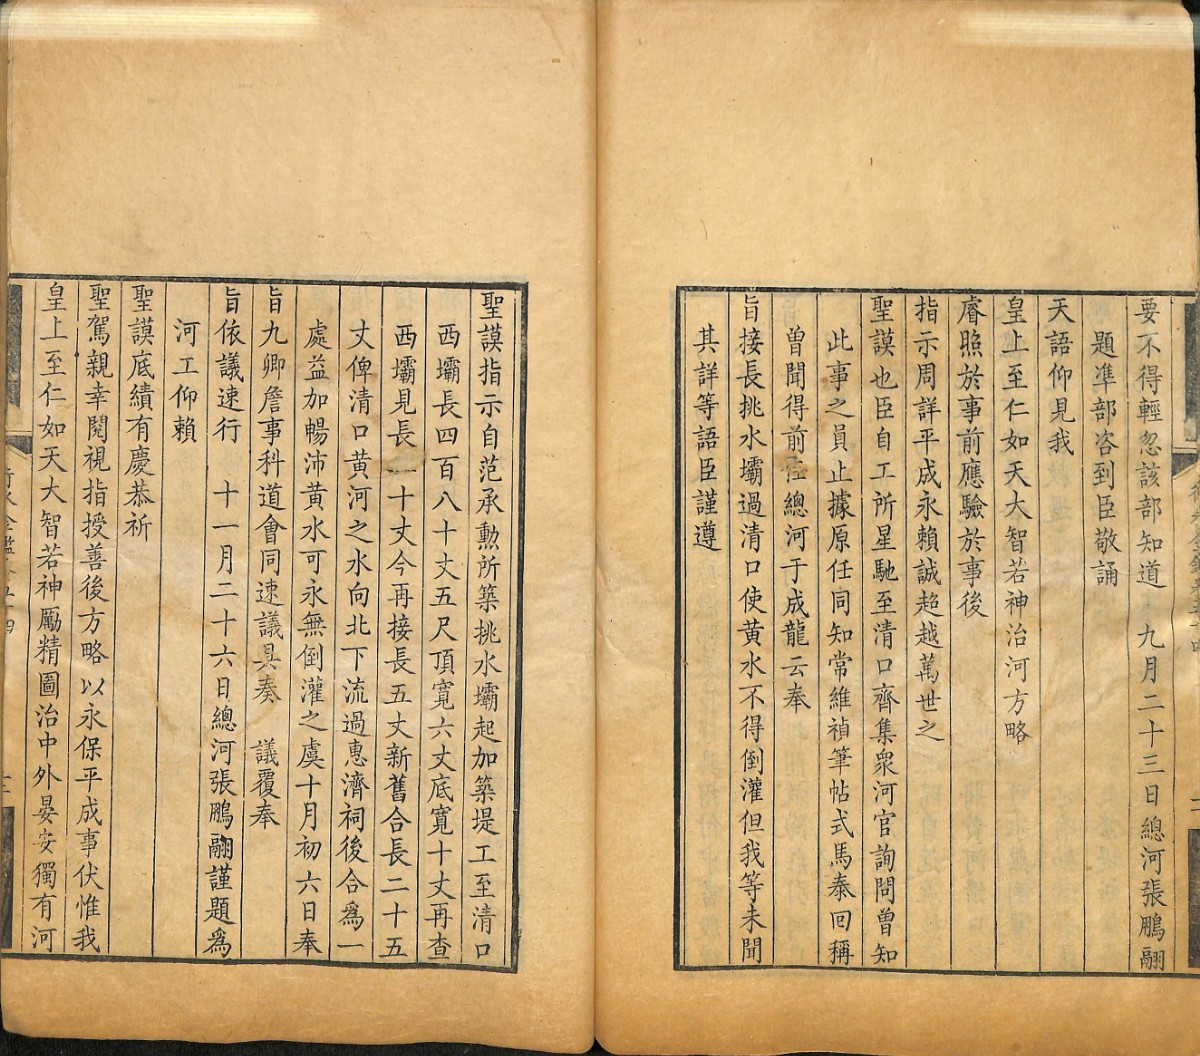 要不得輕忽該部知道 九月二十三日總河張鵬翮
題準部咨到臣敬誦
天語仰見我
皇上至仁如天大智若神治河方略
睿照於事前應驗於事後
指示周詳平成永賴誠超越萬世之
聖謨也臣自工所星馳至清口齊集衆河官詢問曾知
此事之員止據原任同知常維禎筆帖式馬泰回稱
曾聞得前任總河于成龍云奉
旨接長挑水壩過清口使黃水不得倒灌但我等未聞
其詳等語臣謹遵
聖謨指示自范承勳所築挑水壩起加築堤工至清口
西壩長四百八十丈五尺頂寬六丈底寬十丈再查
西壩見長二十丈今再接長五丈新舊合長二十五
丈俾清口黃河之水向北下流過惠濟祠後合爲一
處益加暢沛黃水可永無倒灌之虞十月初六日奉
旨九卿詹事科道會同速議具奏 議覆奉
旨依議速行 十一月二十六日總河張鵬翮謹題爲
河工仰賴
聖謨底績有慶恭祈
聖駕親幸閱視指授善後方略以永保平成事伏惟我
皇上至仁如天大智若神勵精圖治中外晏安獨有河